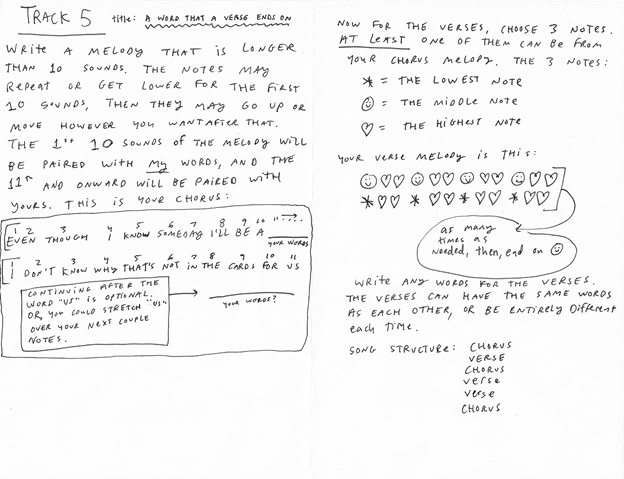 TRACK 5 title: A WORD THAT A VERSE ENDS ON
WRITE A MELODY THAT IS LONGER
THAN 10 SOUNDS. THE NOTES MAY
REPEAT OR GET LOWER FOR THE FIRST
10 SOUNDS, THEN THEY MAY GO UP OR
MOVE HOWEVER YOU WANT AFTER THAT.
THE 1ST 10 SOUNDS OF THE MELODY WILL
BE PAIRED WITH MY WORDS, AND THE
11TH AND ONWARD WILL BE PAIRED WITH
YOURS. THIS IS YOUR CHORUS:
1 2 3 4 5 6 7 8 9 10 11
EVEN THOUGH I KNOW SOMEDAY I'LL BE A
YOUR WORDS
1 2 3 4 5 6 7 8 9 10 11
I DON'T KNOW WHY THAT'S NOT IN THE CARDS FOR US
CONTINUING AFTER THE
WORD "US" IS OPTIONAL.
OR, YOU COULD STRETCH "US"
OVER YOUR NEXT COUPLE
NOTES.
YOUR WORDS?
NOW FOR THE VERSES, CHOOSE 3 NOTES.
AT LEAST ONE OF THEM CAN BE FROM
YOUR CHORUS MELODY. THE 3 NOTES:
* = THE LOWEST NOTE
☺ = THE MIDDLE NOTE
♡ = THE HIGHEST NOTE
YOUR VERSE MELODY IS THIS:
☺♡♡ ☺♡♡ ☺♡♡ ☺♡♡
*♡♡ *♡♡ *♡♡ *♡♡
as many
times as
needed, then, end on ☺
WRITE ANY WORDS FOR THE VERSES.
THE VERSES CAN HAVE THE SAME WORDS
AS EACH OTHER, OR BE ENTIRELY DIFFERENT
each time.
SONG STRUCTURE: CHORUS
VERSE
CHORUS
verse
verse
CHORUS